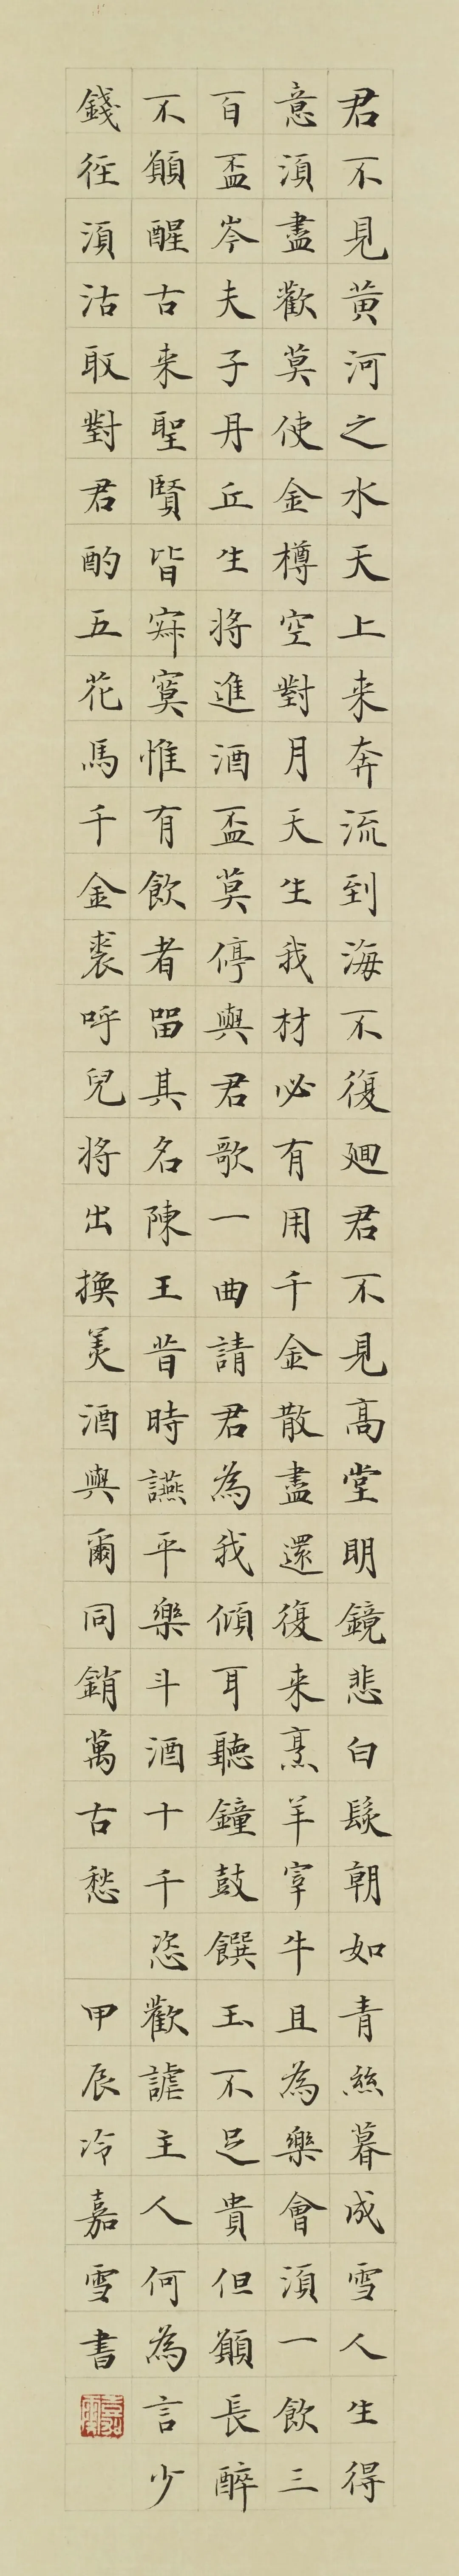 君不見黃河之水天上来奔流到海不復廻君不見髙堂明鏡悲白髮朝如青絲暮成雪人生得
意湏盡歡莫使金樽空對月天生我材必有用千金散盡還復来烹羊宰牛且為樂會湏一飲三
百盃岑夫子丹丘生将進酒盃莫停與君歌一曲請君為我傾耳聽鐘鼓饌玉不足貴但願長醉
不願醒古来聖賢皆寂寞惟有飲者留其名陳王昔時讌平樂斗酒十千恣歡謔主人何為言少
錢徑湏沽取對君酌五花馬千金裘呼兒将出換美酒與爾同銷萬古愁 甲辰冷嘉雪書
嘉雪